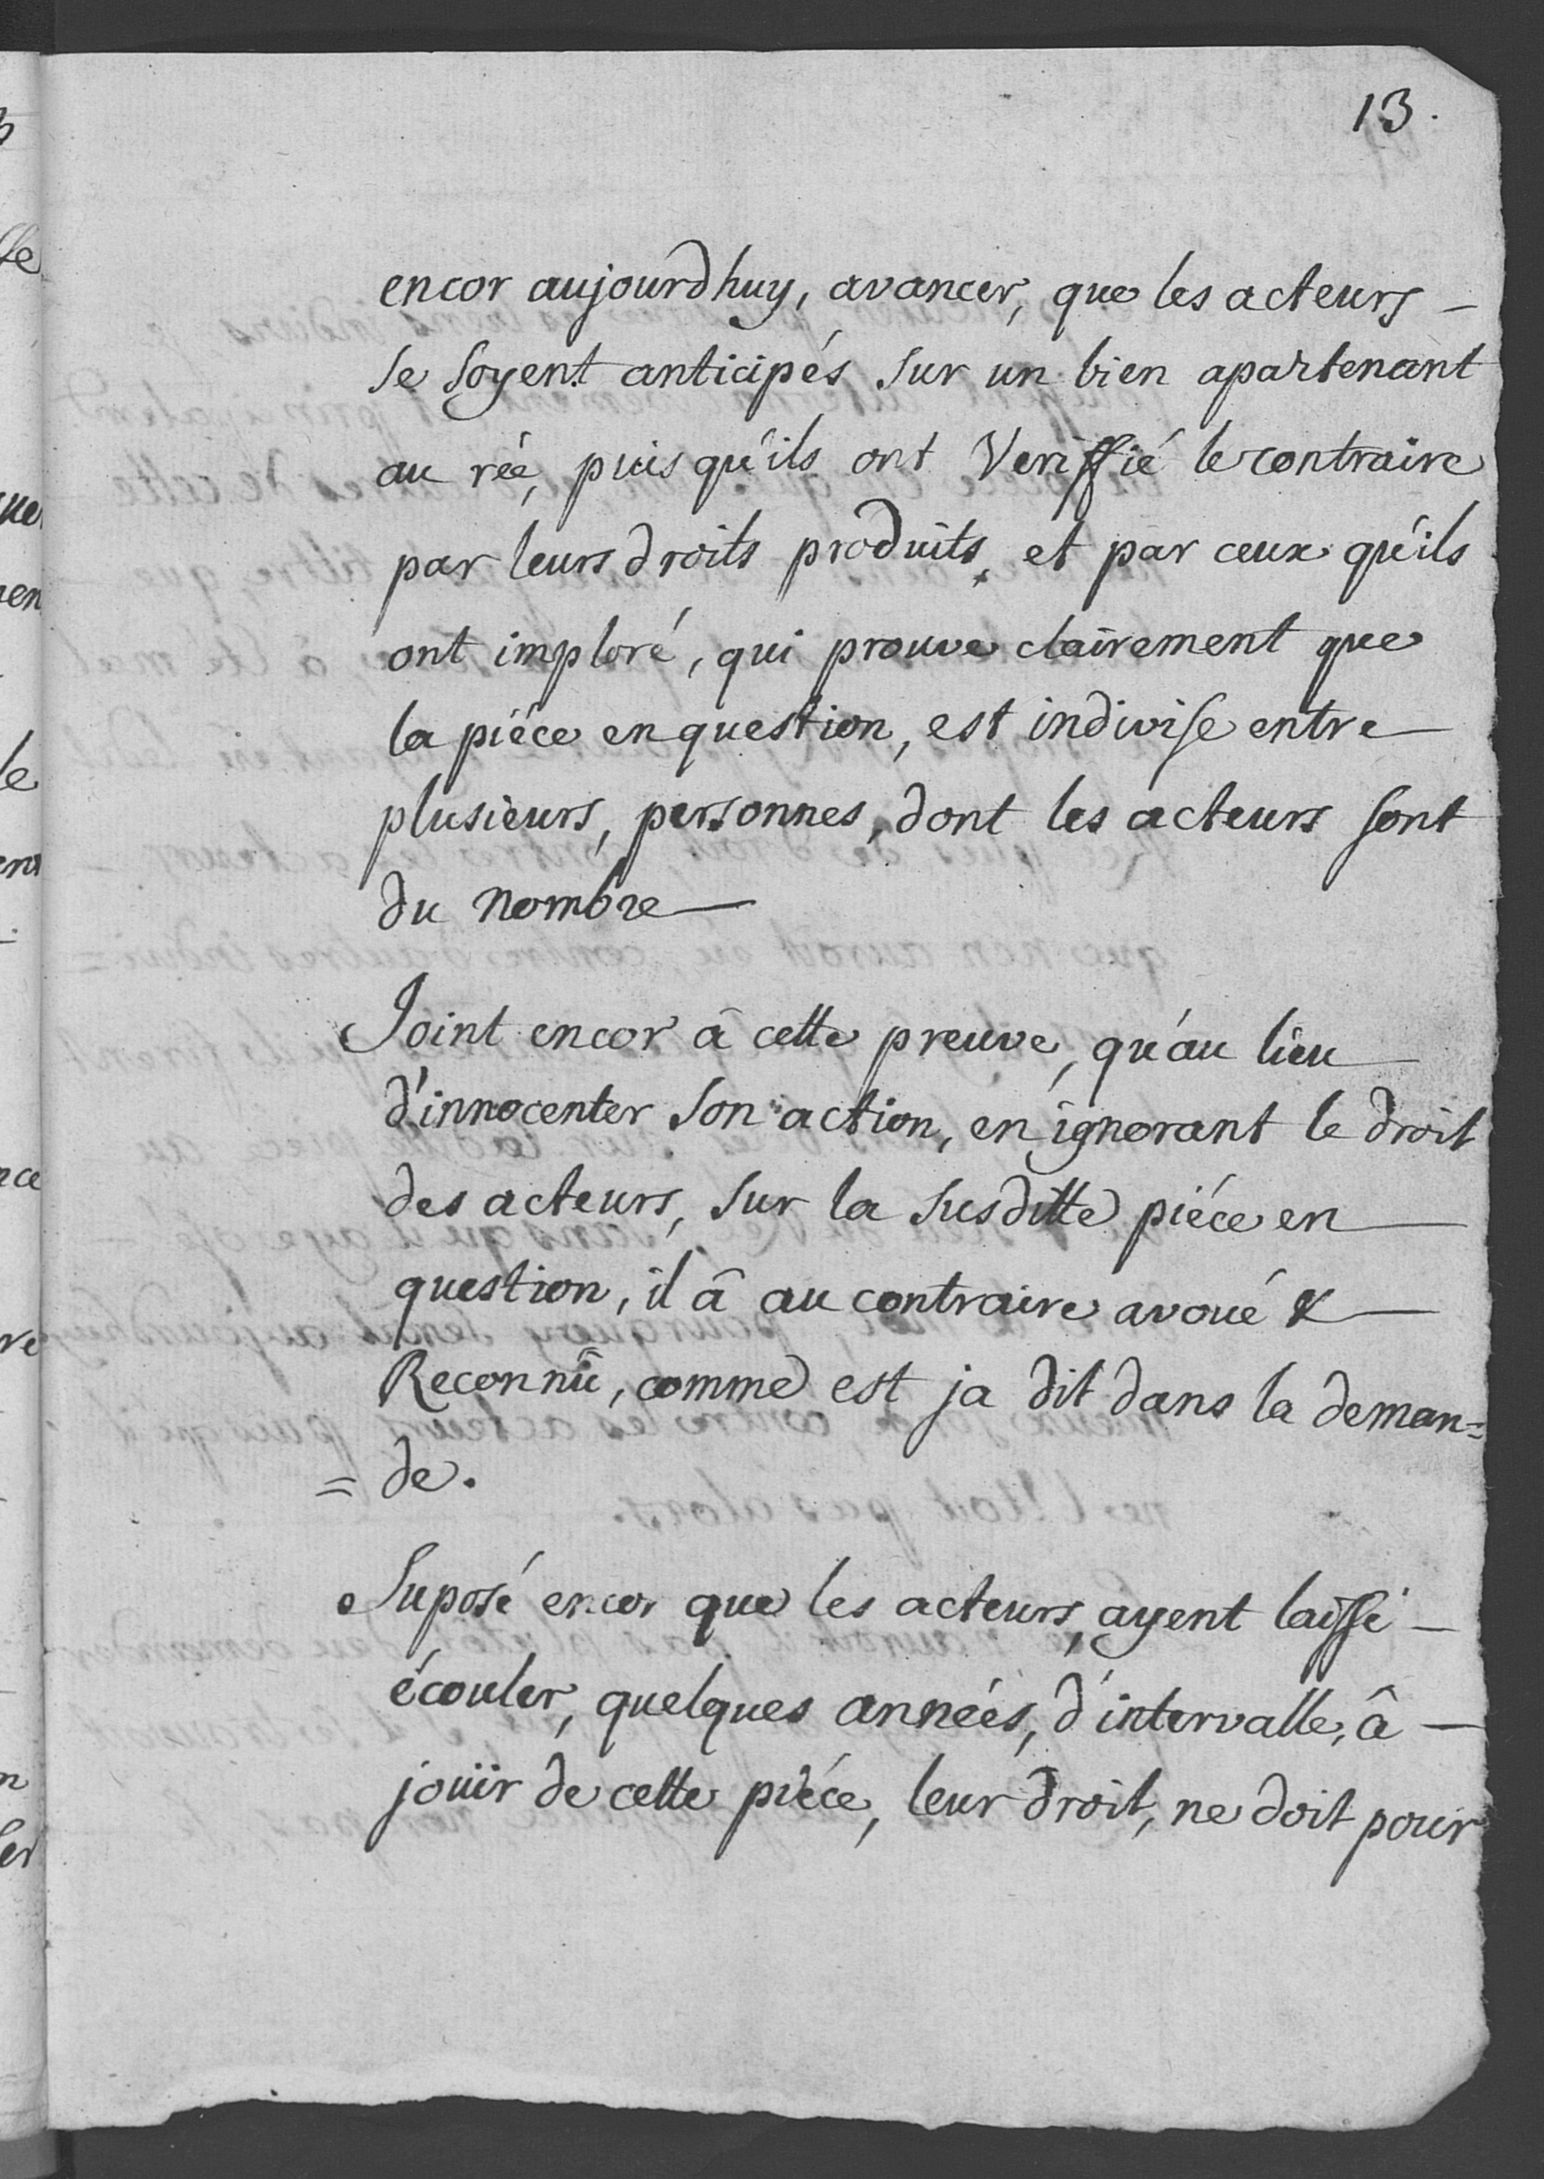 13.
encor aujourdhuy, avancer, que les acteurs –
se soyent anticipés sur un bien apartenant
au rée, puis qu'ils ont Veriffié le contraire
par leurs droits produits, et par ceux qu'ils
ont imploré, qui prouve clairement que
la piéce en question, est indivise entre –
plusieurs, personnes, dont les acteurs sont
du nombre –
Joint encor â cette preuve, qu'au lieu –
d'innocenter son action, en ignorant le droit
des acteurs, sur la susditte piéce en –
question, il â au contraire avoué & –
Reconnû, comme est ja dit dans la deman=
= de.
Suposé encor que les acteurs, ayent laissé –
écouler, quelques années, d'intervalle, â –
jouïr de cette piéce, leur droit, ne doit pour